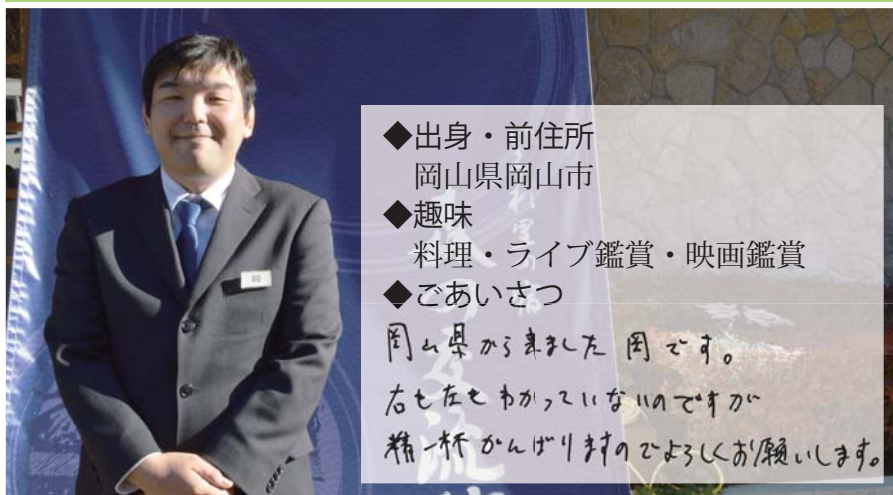 ◆出身・前住所
岡山県岡山市
◆趣味
料理・ライブ鑑賞・映画鑑賞
◆ごあいさつ
岡山県から来ました 岡です。
右も左もわかっていないのですが
精一杯がんばりますのでよろしくお願いします。
岡
交流